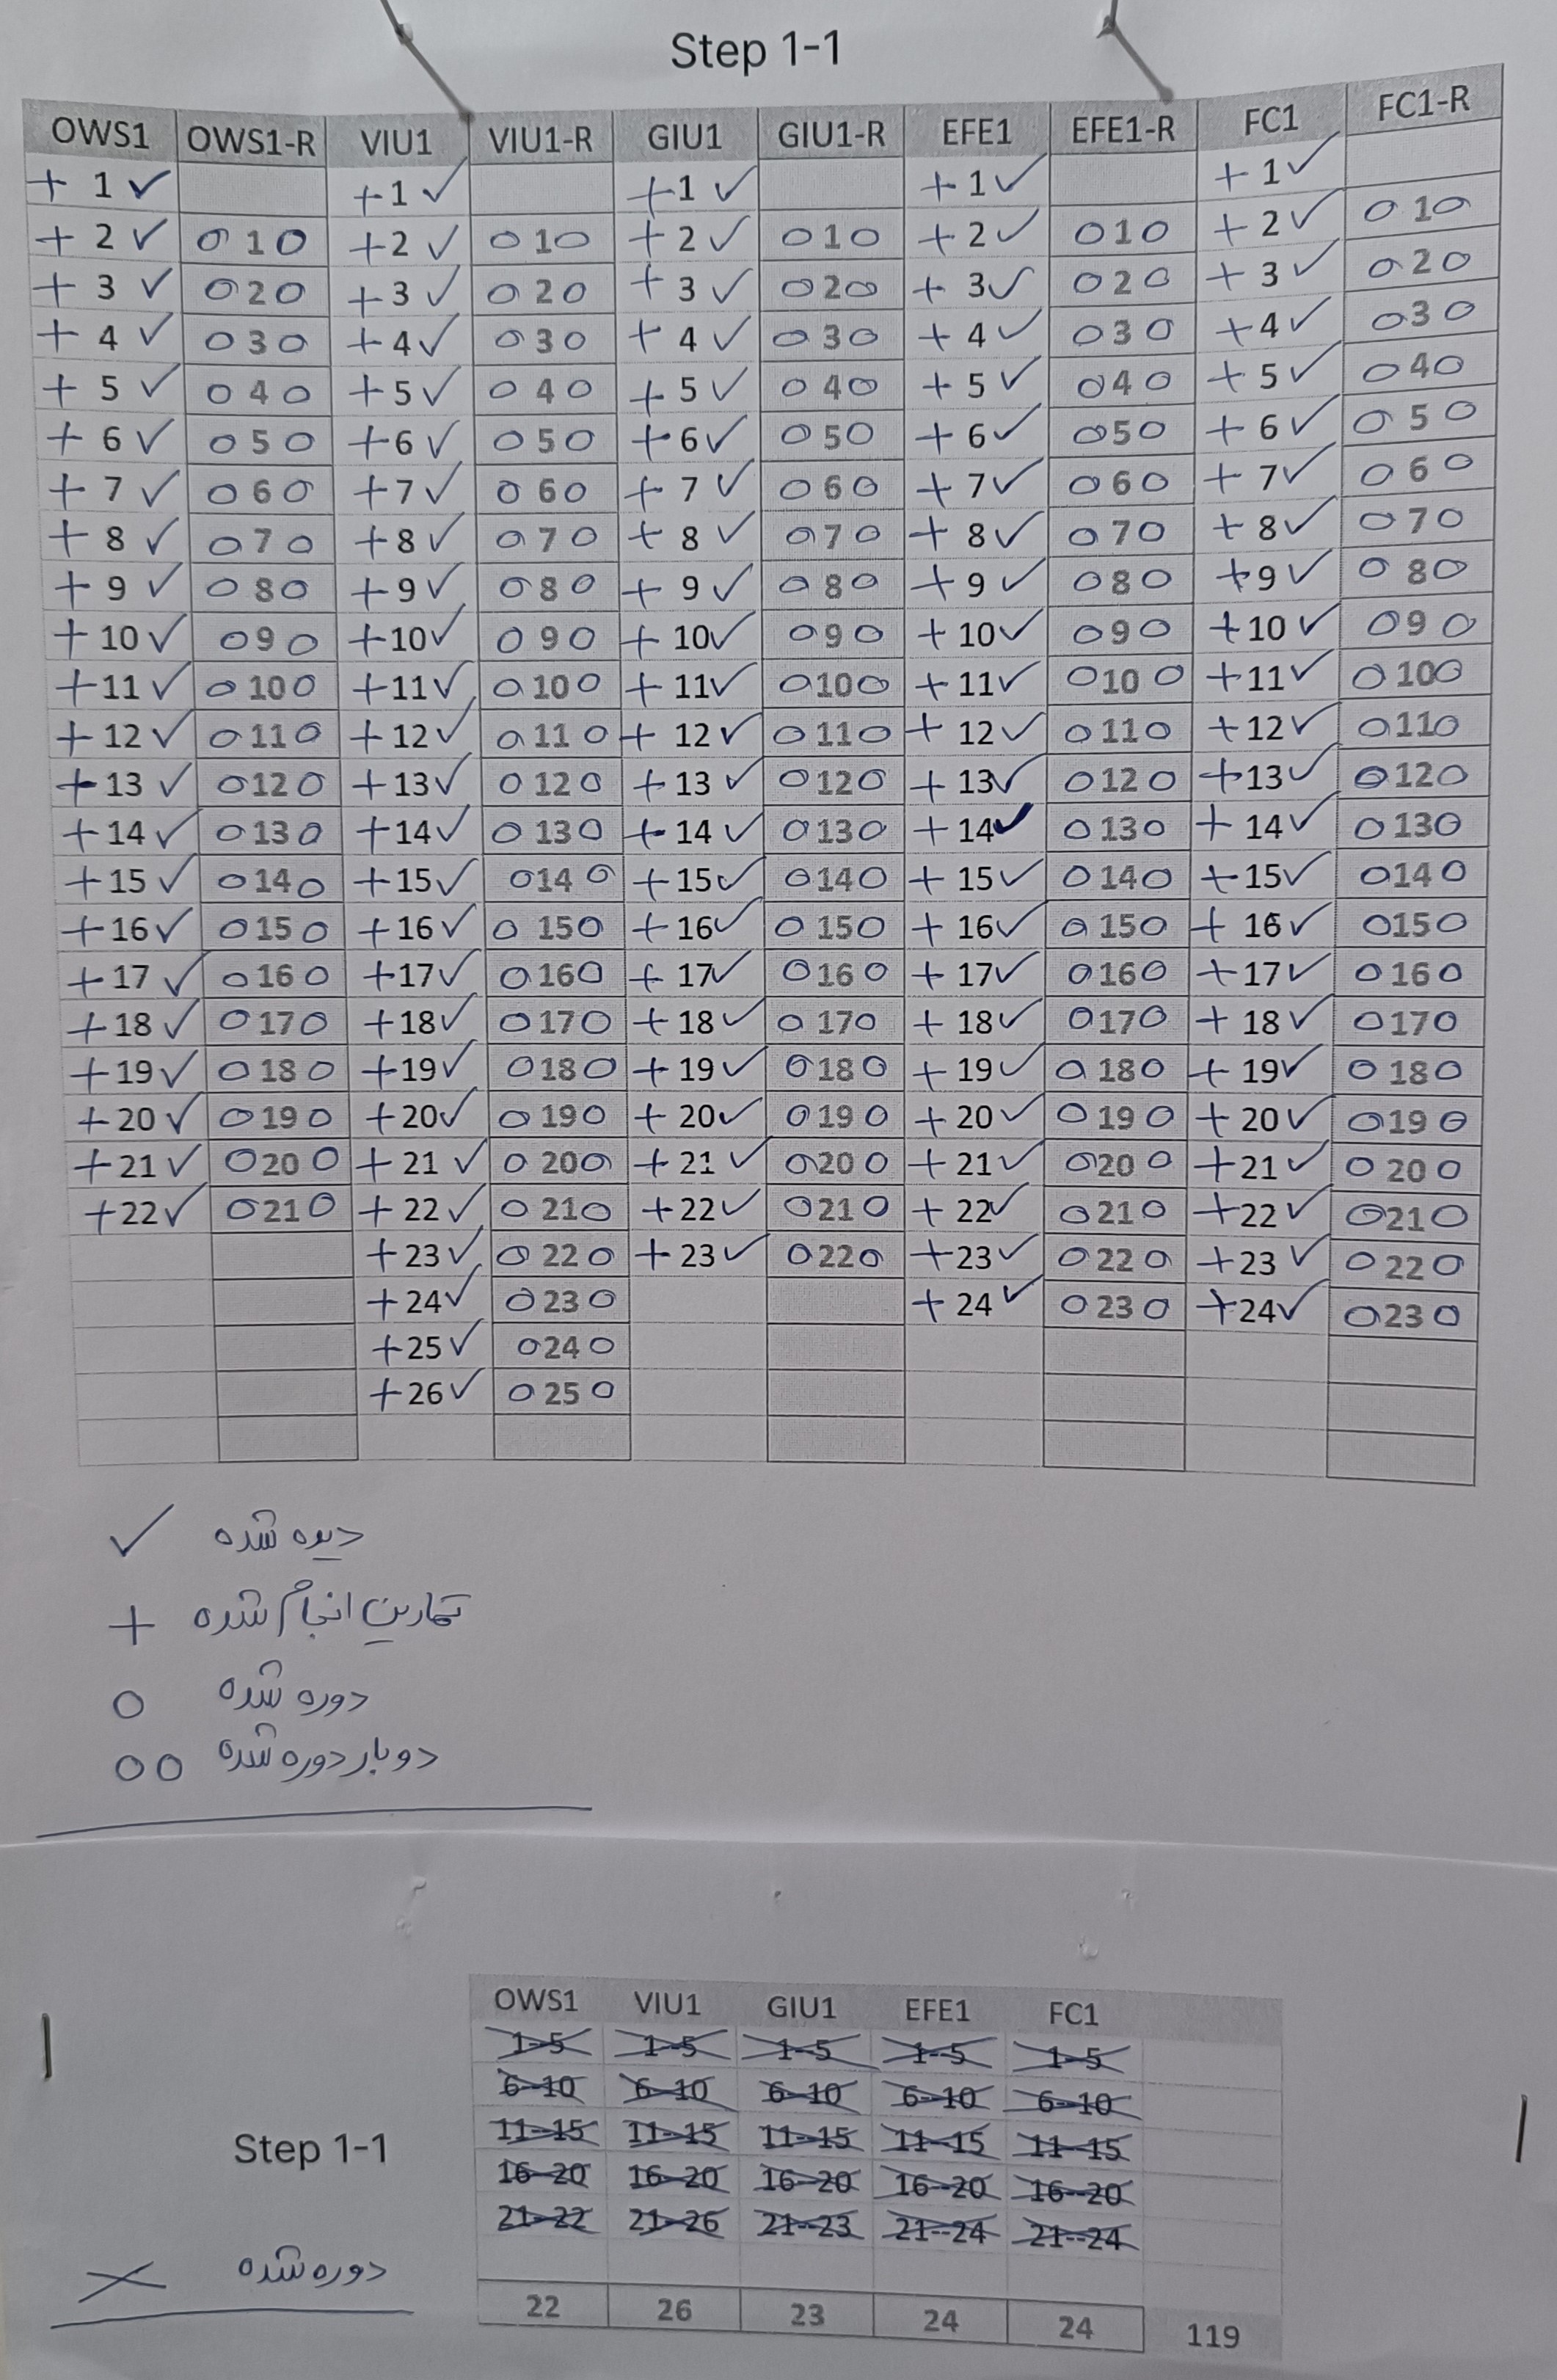 Step 1-1
OWS1 OWS1-R VIU1 VIU1-R GIU1 GIU1-R EFE1 EFE1-R FC1 FC1-R
+ 1 ✓ + 1 ✓ + 1 ✓ + 1 ✓ + 1 ✓
+ 2 ✓ O 1 O + 2 ✓ O 1 O + 2 ✓ O 1 O + 2 ✓ O 1 O + 2 ✓ O 1 O
+ 3 ✓ O 2 O + 3 ✓ O 2 O + 3 ✓ O 2 O + 3 ✓ O 2 O + 3 ✓ O 2 O
+ 4 ✓ O 3 O + 4 ✓ O 3 O + 4 ✓ O 3 O + 4 ✓ O 3 O + 4 ✓ O 3 O
+ 5 ✓ O 4 O + 5 ✓ O 4 O + 5 ✓ O 4 O + 5 ✓ O 4 O + 5 ✓ O 4 O
+ 6 ✓ O 5 O + 6 ✓ O 5 O + 6 ✓ O 5 O + 6 ✓ O 5 O + 6 ✓ O 5 O
+ 7 ✓ O 6 O + 7 ✓ O 6 O + 7 ✓ O 6 O + 7 ✓ O 6 O + 7 ✓ O 6 O
+ 8 ✓ O 7 O + 8 ✓ O 7 O + 8 ✓ O 7 O + 8 ✓ O 7 O + 8 ✓ O 7 O
+ 9 ✓ O 8 O + 9 ✓ O 8 O + 9 ✓ O 8 O + 9 ✓ O 8 O + 9 ✓ O 8 O
+ 10 ✓ O 9 O + 10 ✓ O 9 O + 10 ✓ O 9 O + 10 ✓ O 9 O + 10 ✓ O 9 O
+ 11 ✓ O 10 O + 11 ✓ O 10 O + 11 ✓ O 10 O + 11 ✓ O 10 O + 11 ✓ O 10 O
+ 12 ✓ O 11 O + 12 ✓ O 11 O + 12 ✓ O 11 O + 12 ✓ O 11 O + 12 ✓ O 11 O
+ 13 ✓ O 12 O + 13 ✓ O 12 O + 13 ✓ O 12 O + 13 ✓ O 12 O + 13 ✓ O 12 O
+ 14 ✓ O 13 O + 14 ✓ O 13 O + 14 ✓ O 13 O + 14 ✓ O 13 O + 14 ✓ O 13 O
+ 15 ✓ O 14 O + 15 ✓ O 14 O + 15 ✓ O 14 O + 15 ✓ O 14 O + 15 ✓ O 14 O
+ 16 ✓ O 15 O + 16 ✓ O 15 O + 16 ✓ O 15 O + 16 ✓ O 15 O + 16 ✓ O 15 O
+ 17 ✓ O 16 O + 17 ✓ O 16 O + 17 ✓ O 16 O + 17 ✓ O 16 O + 17 ✓ O 16 O
+ 18 ✓ O 17 O + 18 ✓ O 17 O + 18 ✓ O 17 O + 18 ✓ O 17 O + 18 ✓ O 17 O
+ 19 ✓ O 18 O + 19 ✓ O 18 O + 19 ✓ O 18 O + 19 ✓ O 18 O + 19 ✓ O 18 O
+ 20 ✓ O 19 O + 20 ✓ O 19 O + 20 ✓ O 19 O + 20 ✓ O 19 O + 20 ✓ O 19 O
+ 21 ✓ O 20 O + 21 ✓ O 20 O + 21 ✓ O 20 O + 21 ✓ O 20 O + 21 ✓ O 20 O
+ 22 ✓ O 21 O + 22 ✓ O 21 O + 22 ✓ O 21 O + 22 ✓ O 21 O + 22 ✓ O 21 O
+ 23 ✓ O 22 O + 23 ✓ O 22 O + 23 ✓ O 22 O + 23 ✓ O 22 O
+ 24 ✓ O 23 O + 24 ✓ O 23 O + 24 ✓ O 23 O
+ 25 ✓ O 24 O
+ 26 ✓ O 25 O
✓ دیده شده
+ تمارین انجام شده
O دوره شده
OO دو بار دوره شده
OWS1 VIU1 GIU1 EFE1 FC1
1--5 1--5 1--5 1--5 1--5
6--10 6--10 6--10 6--10 6--10
11--15 11--15 11--15 11--15 11--15
Step 1-1
16--20 16--20 16--20 16--20 16--20
21--22 21--26 21--23 21--24 21--24
× دوره شده
22 26 23 24 24 119